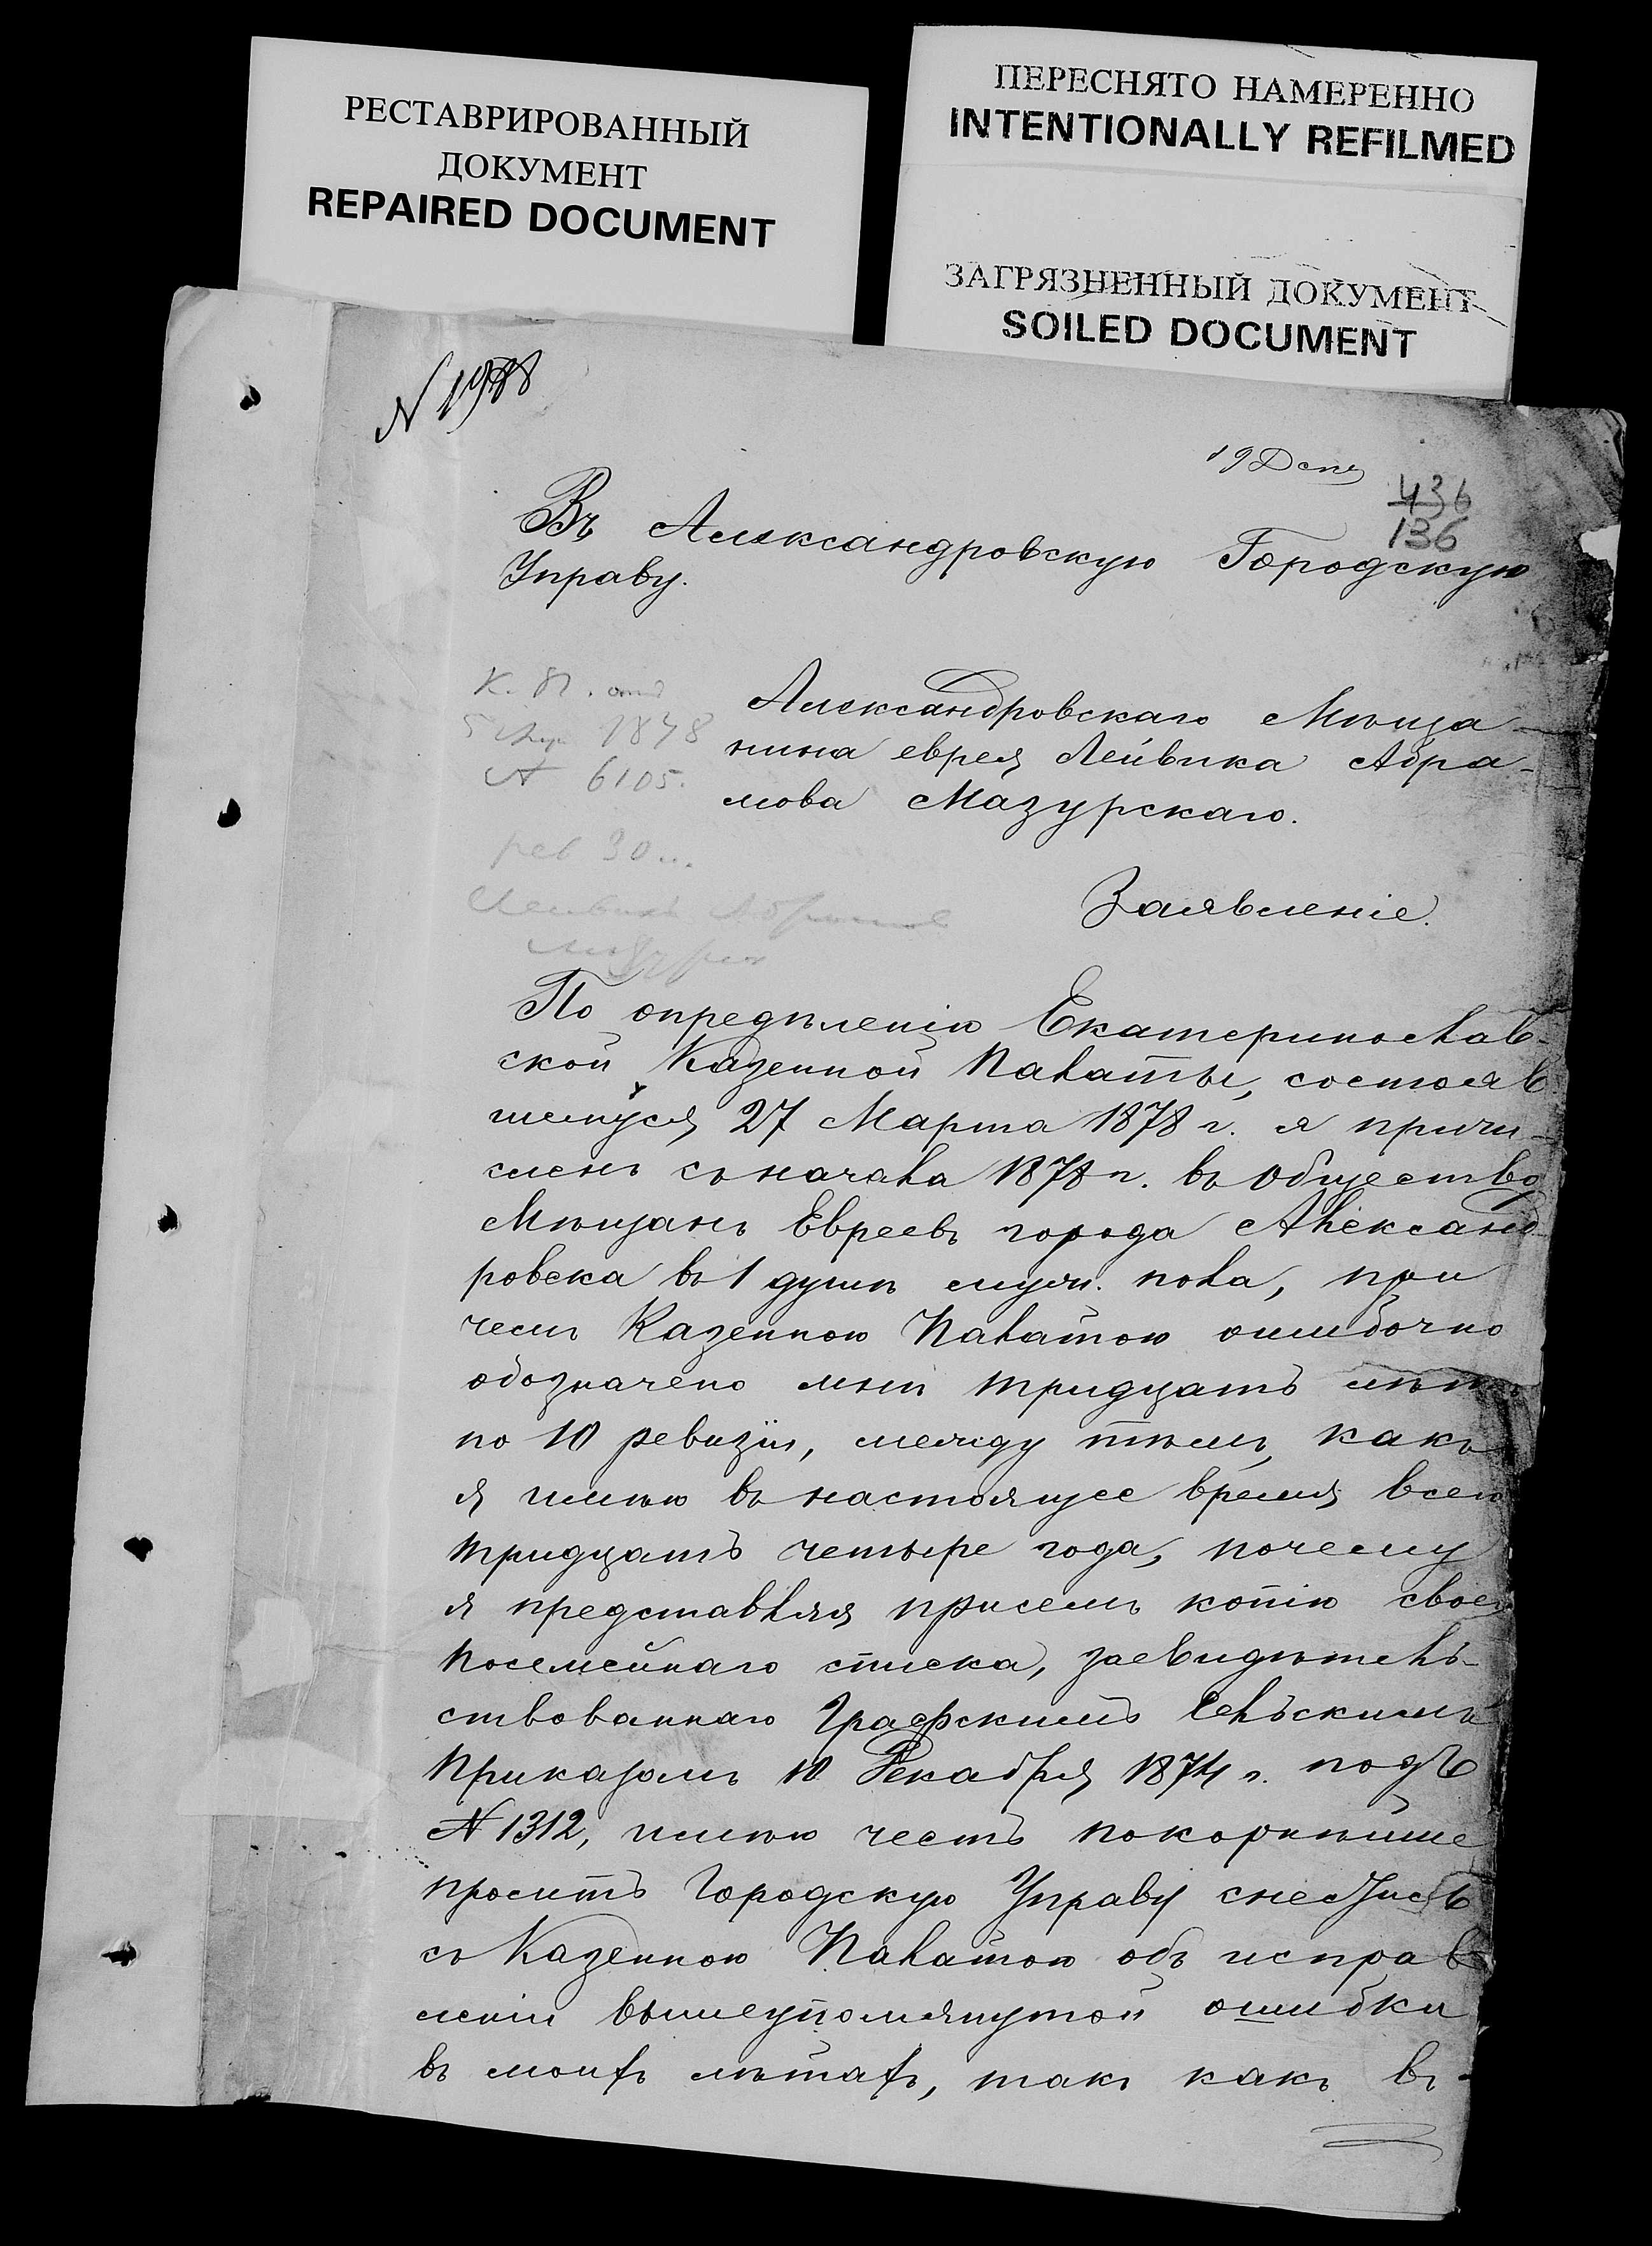 РЕСТАВРИРОВАННЫЙ
ДОКУМЕНТ
REPAIRED DOCUMENT
ПЕРЕСНЯТО НАМЕРЕННО
INTENTIONALLY REFILMED
ЗАГРЯЗНЕННЫЙ ДОКУМЕНТ
SOILED DOCUMENT
N 1988
19 Дек
436
136
Въ Александровскую Городскую
Управу.
К. П. отъ
5 1878
N 6105.
рев 30 л.
Лейвикъ Абрамов
Мазурск
Александровскаго Мѣща-
нина еврея Лейвика Абра-
мова Мазурскаго.
Заявленіе.
По опредѣленію Екатеринослав-
ской Казенной Палаты, состояв
шемуся 27 Марта 1878 г. я причи-
сленъ съ начала 1878 г. въ общество
Мѣщанъ Евреевъ города Александ-
ровска въ 1 душѣ муж. пола, при
чемъ Казенною Палатою ошибочно
обозначено мнѣ тридцать лѣтъ
по 10 ревизіи, между тѣмъ, какъ
я имѣю въ настоящее время всего
тридцать четыре года, почему
я представляя присемъ копію своего
посемейнаго списка, засвидѣтель-
ствованнаго Графскимъ Сельскимъ
Приказомъ 10 Декабря 1874 г. подъ
N 1312, имѣю честь покорнѣйше
просить Городскую Управу снестись
съ Казенною Палатою объ исправ
леніи вышеупомянутой ошибки
въ моихъ лѣтахъ, такъ какъ въ